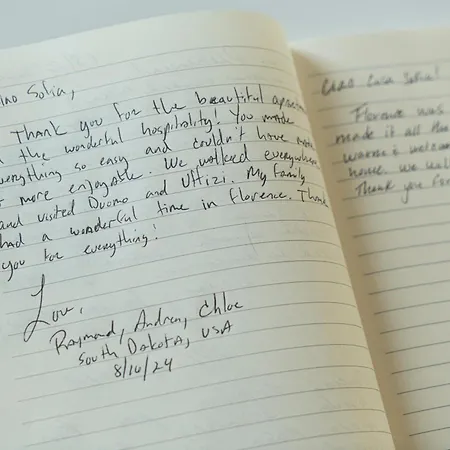 iao Sofia,
Thank you for the beautiful apartm
the wonderful hospitality! You made
verything so easy and couldn't have made
more enjoyable. We walked everywhere
and visited Duomo and Uffizi. My family
had a wonderful time in Florence. Thank
you for everything!
Love,
Raymond, Andrea, Chloe
South Dakota, USA
8/10/24
Ciao Casa Sofia!
Florence was
made it all the
warmest welcom
home. We
Thank you for